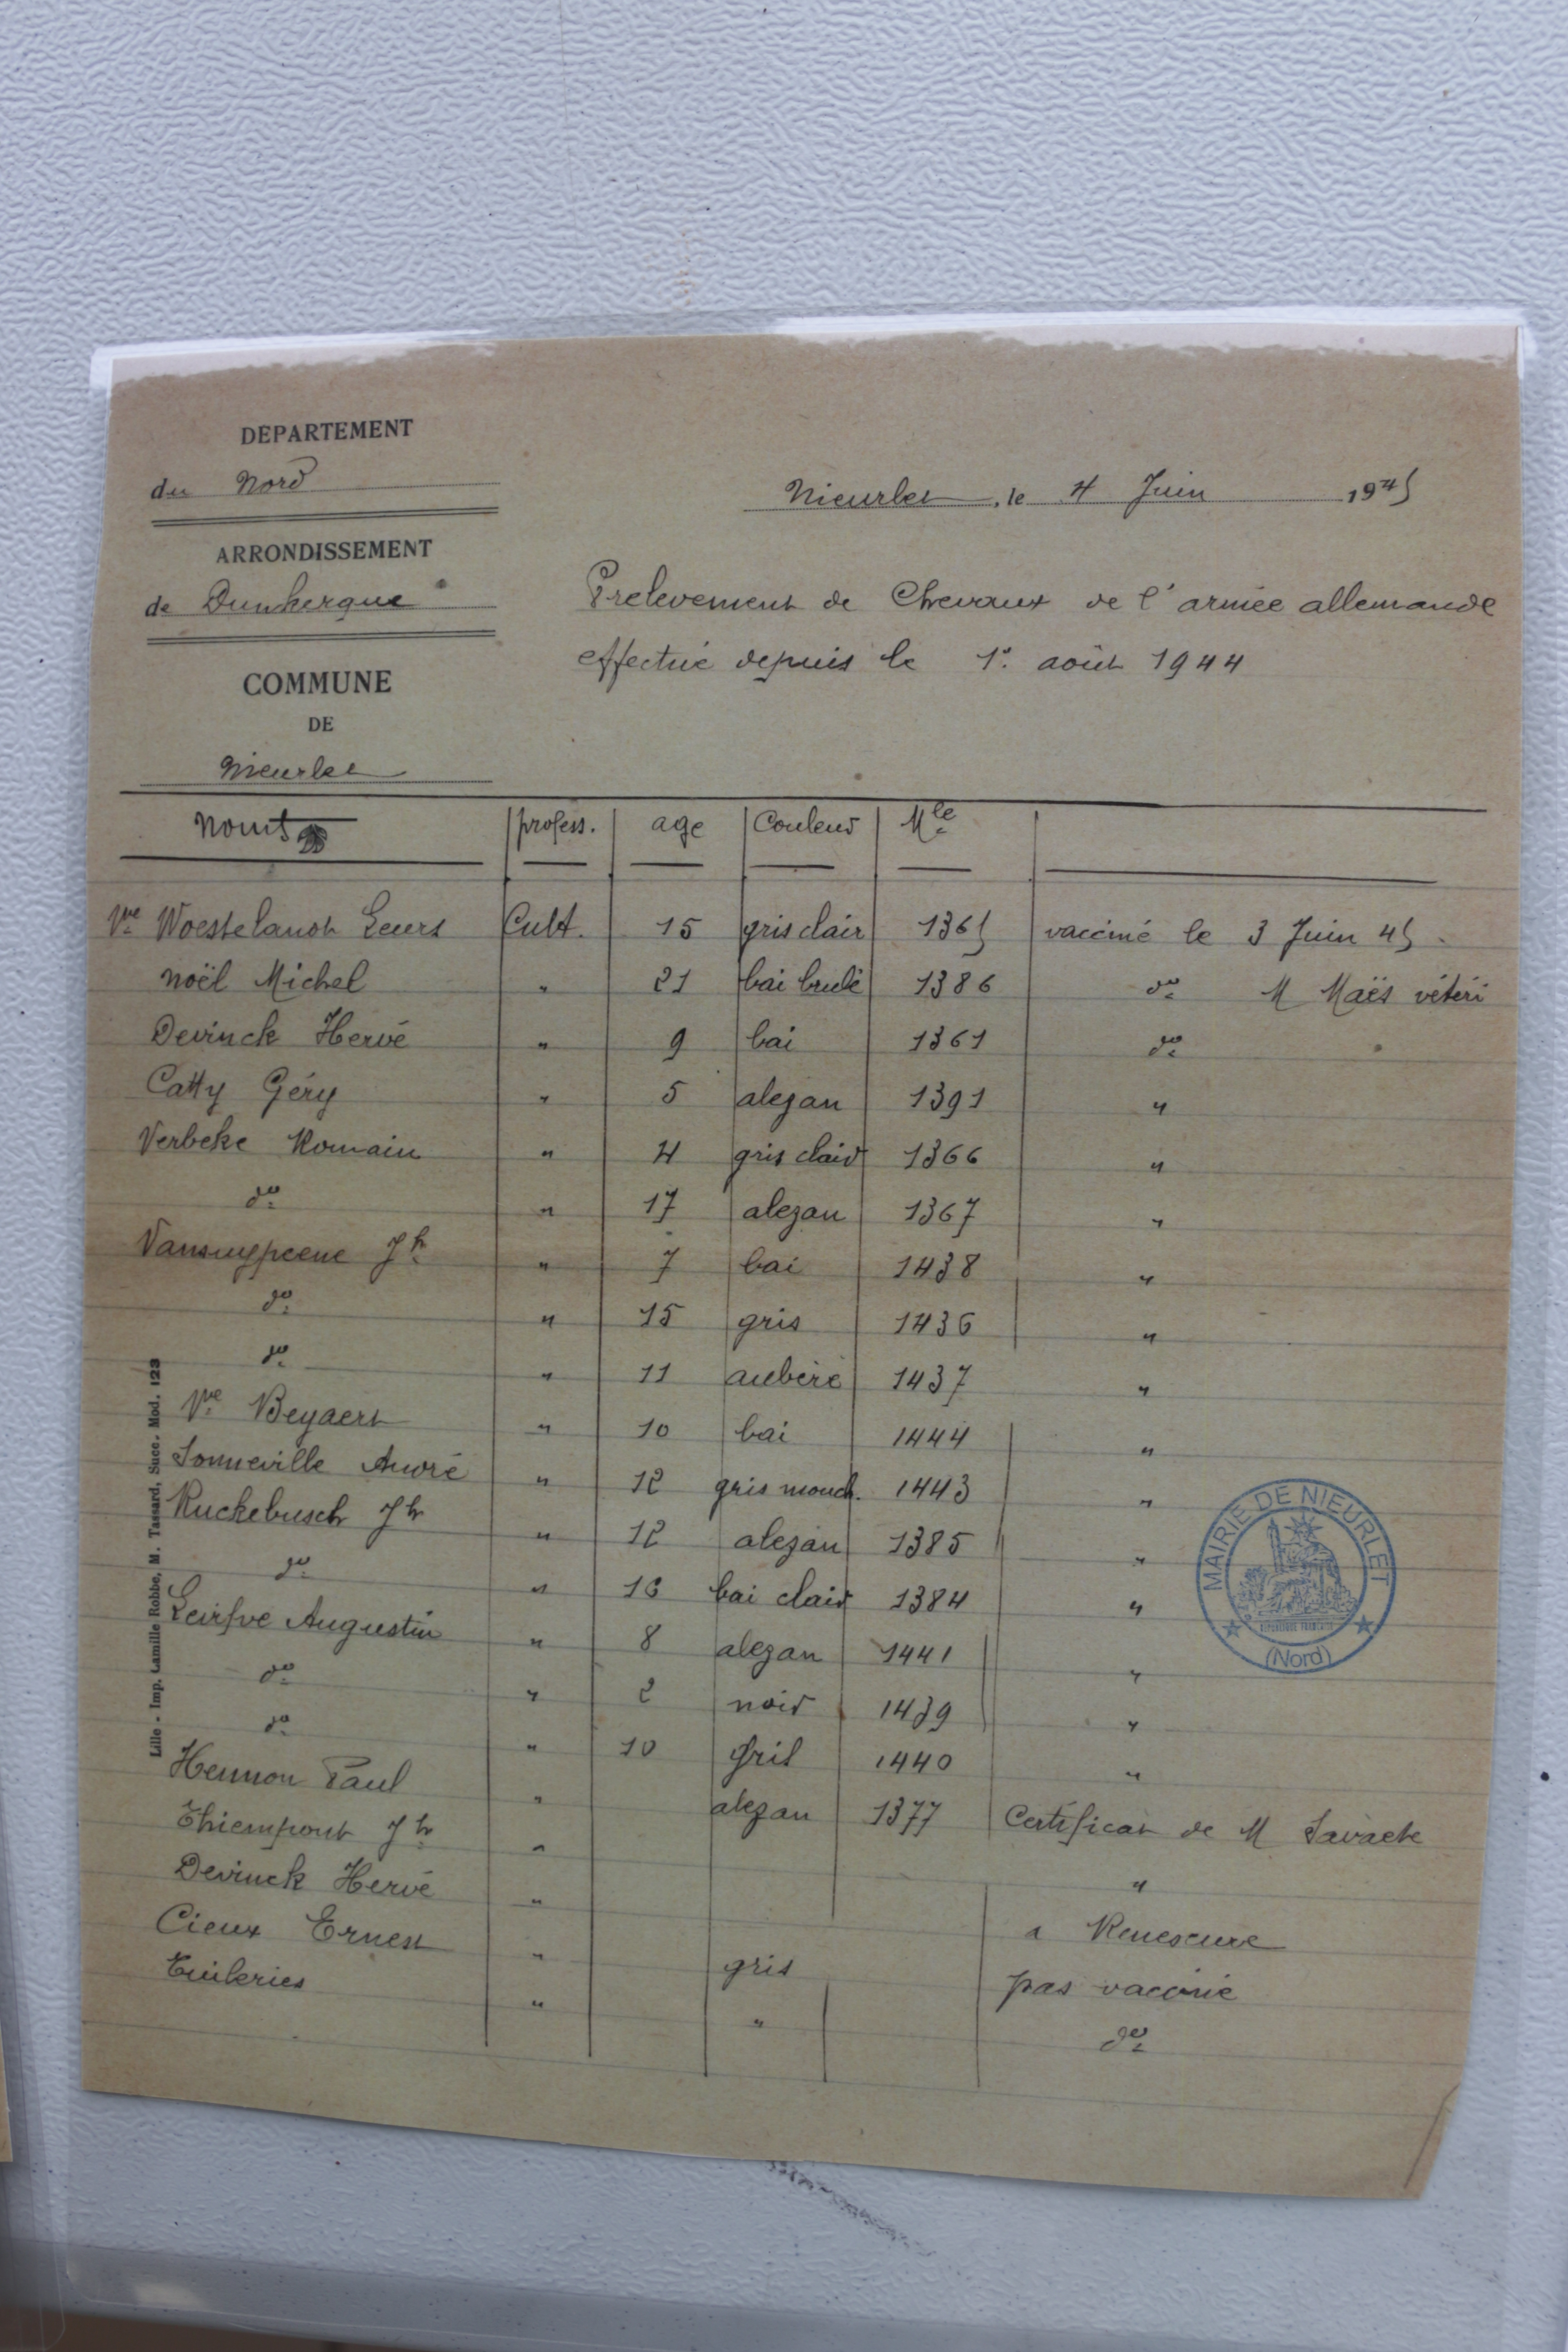 DEPARTEMENT
du Nord
Nieurlet, le 4 Juin 1945
ARRONDISSEMENT
de Dunkerque
Prelevement de Chevaux de l'armée allemande
effectué depuis le 1° août 1944
COMMUNE
DE
Nieurlet
Noms profess. age Couleur Mle
Vve Woestelandt Leurs Cult. 15 gris clair 1365 vacciné le 3 Juin 45
Noël Michel " 21 bai brulé 1386 do M Maës vétéri
Devinck Hervé " 9 bai 1361 do
Catty Géry " 5 alezan 1391 "
Verbeke Romain " 4 gris clair 1366 "
do " 17 alezan 1367 "
Jh " 7 bai 1438 "
do " 15 gris 1436 "
do " 11 aubère 1437 "
Vve Beyaert " 10 bai 1444 "
Sonneville André " 12 gris mouch. 1443 "
Ruckebusch Jh " 12 alezan 1385 "
do " 16 bai clair 1384 "
Augustin " 8 alezan 1441 "
do " 2 noir 1439 "
do " 10 gris 1440 "
Hennon Paul " alezan 1377 Certificat de M Savaete
Thiempont Jh " "
Devinck Hervé " a Renescure
Cieux Ernest " gris pas vacciné
Tuileries " " do
MAIRIE DE NIEURLET
REPUBLIQUE FRANCAISE
(Nord)
Lille - Imp. Camille Robbe, M. Tassard, Succ. Mod. 123